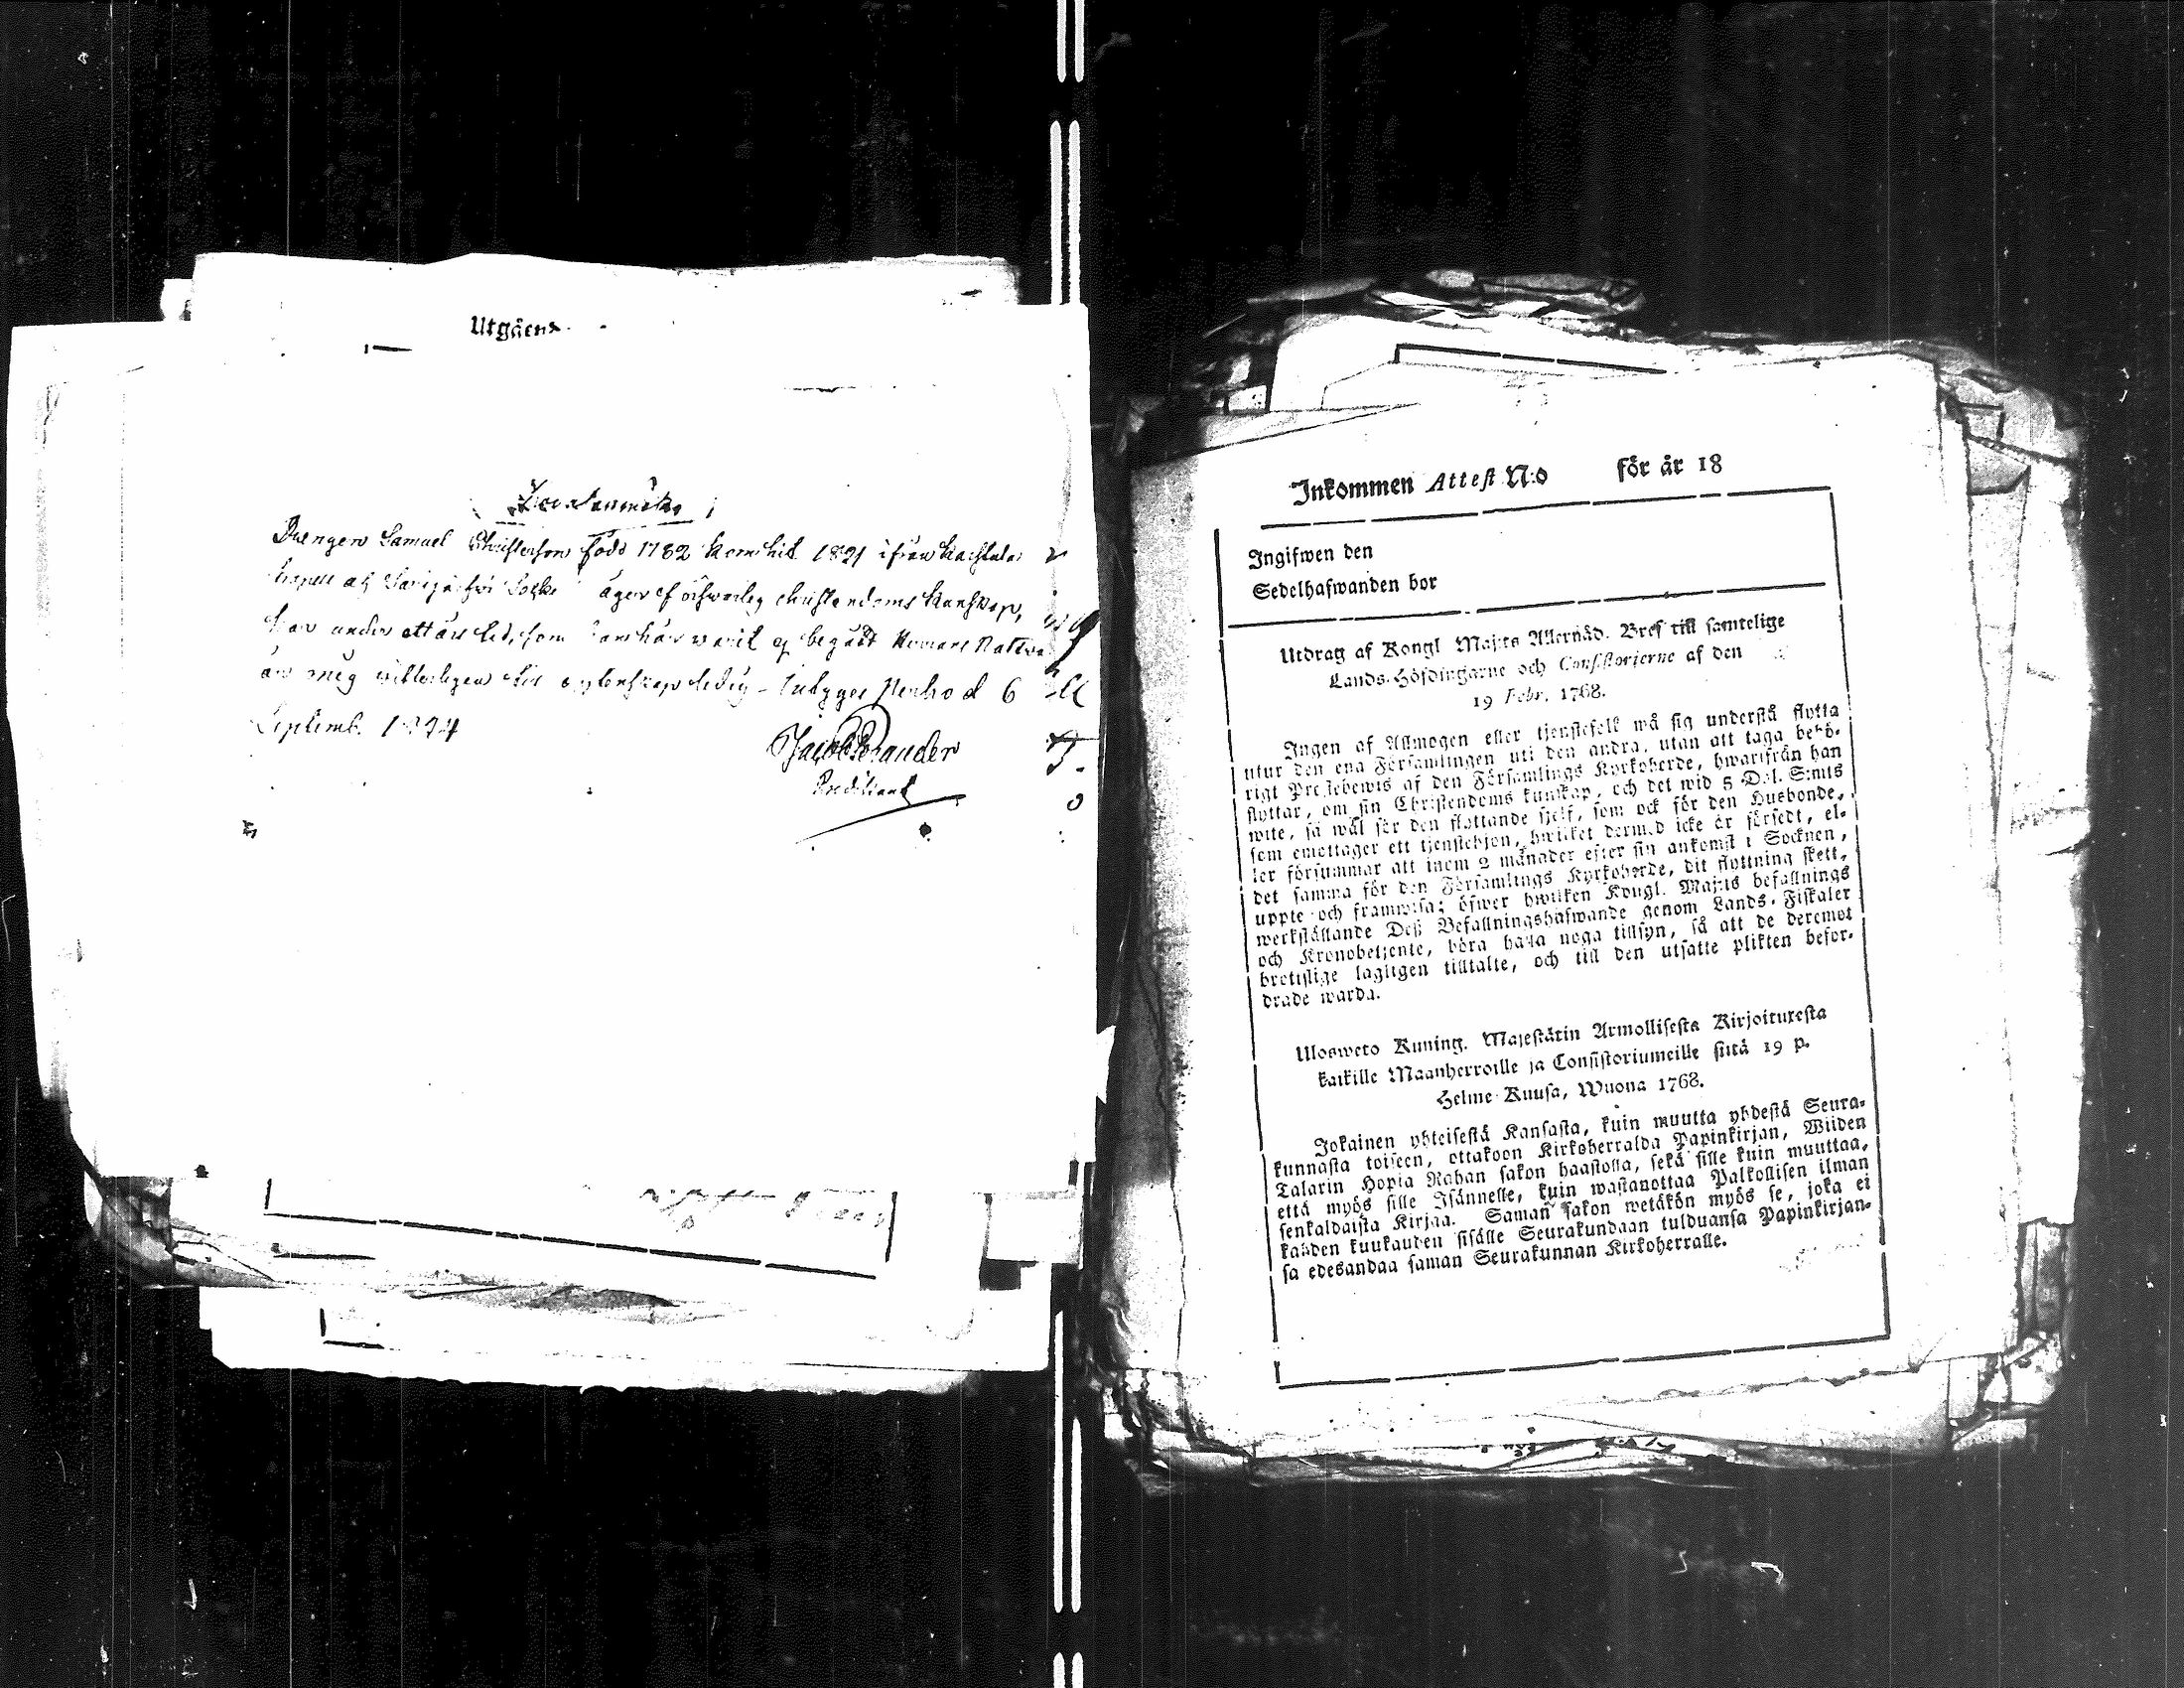 Utgåens
Drengen Samuel Christerson född 1782 kom hit 1821 ifrån Karstula
kapell af Saarijärfvi Sockn äger försvarlig christendoms kunskap,
har under ett års tid, som han här warit ej begått Herrans Nattward
är mig witterligen til ägtenskap ledig
6
Septemb.
Jacob
Inkommen Attest N:o för år 18
Ingifwen den
Sedelhafwanden bor
Utdrag af Kongl Maj:ts Allernåd. Bref till samtelige
Lands-Höfdingarne och Consistorierne af den
19 Febr. 1768.
Ingen af Allmogen eller tjenstefolk må sig understå flytta
utur den ena Församlingen uti den andra, utan att taga behö-
rigt Prestebewis af den Församlings Kyrkoherde, hwarifrån han
flyttar, om sin Christendoms kunskap, och det wid 5 Dal. S:mts
wite, så wäl för den flyttande sjelf, som ock för den Husbonde,
som emottager ett tjenstehjon, hwilket dermed icke är försedt, el-
ler försummar att inom 2 månader efter sin ankomst i Socknen,
det samma för den Församlings Kyrkoherde, dit flyttning skett,
uppte och framwisa; öfwer hwilken Kongl. Maj:ts befallnings
werkställande Deß Befallningshafwande genom Lands-Fiskaler
och Kronobetjente, böra hafwa noga tillsyn, så att de deremot
brotslige lagligen tilltalte, och till den utsatte plikten befor-
drade warda.
Ulosweto Kuning. Majestätin Armollisesta Kirjoituxesta
kaikille Maanherroille ja Consistoriumeille siitä 19 p.
Helme-Kuusa, Wuona 1768.
Jokainen yhteisestä Kansasta, kuin muutta yhdestä Seura-
kunnasta toiseen, ottakoon Kirkoherralda Papinkirjan, Wiiden
Talarin Hopia Rahan sakon haastolla, sekä sille kuin muuttaa,
että myös sille Isännelle, kuin wastanottaa Palkollisen ilman
senkaldaista Kirjaa. Saman sakon wetäkön myös se, joka ei
kahden kuukauden sisälle Seurakundaan tulduansa Papinkirjan-
sa edesandaa saman Seurakunnan Kirkoherralle.